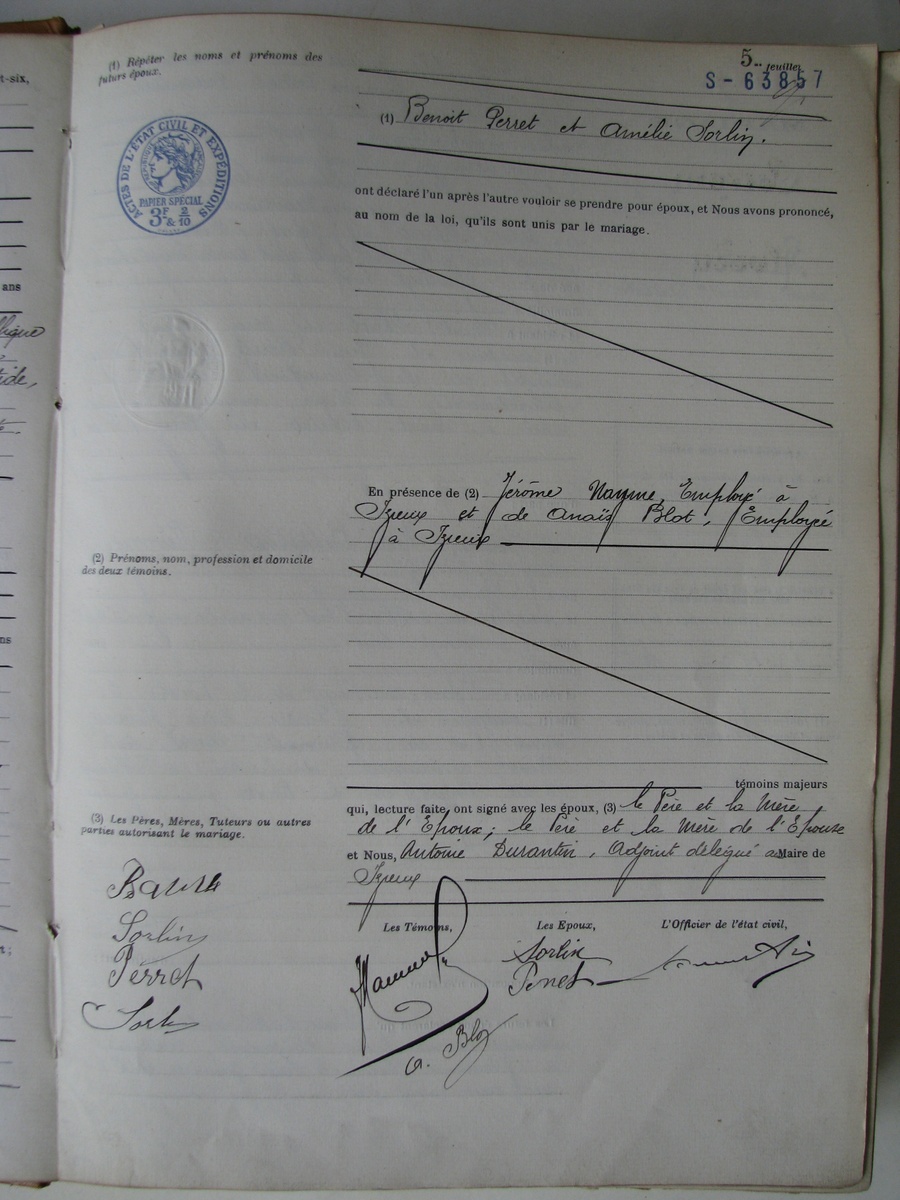 t-six,
ans
ns
(1) Répéter les noms et prénoms des
futurs époux.
5me feuillet
S-63857
ACTES DE L'ÉTAT CIVIL ET EXPÉDITIONS
PAPIER SPÉCIAL
3F & 2/10
(1) Benoit Perret et Amélie Sorlin.
ont déclaré l'un après l'autre vouloir se prendre pour époux, et Nous avons prononcé,
au nom de la loi, qu'ils sont unis par le mariage.
En présence de (2) Jérôme Nayme, Employé à
Izieux et de Anaïs Blot, Employée
à Izieux
(2) Prénoms, nom, profession et domicile
des deux témoins.
témoins majeurs
qui, lecture faite, ont signé avec les époux, (3) le Père et la Mère
de l'Epoux; le Père et la Mère de l'Epouse
et Nous, Antoine Durantin, Adjoint délégué au Maire de
Izieux
(3) Les Pères, Mères, Tuteurs ou autres
parties autorisant le mariage.
Sorlin
Perret
Sorlin
Les Témoins,
Les Epoux,
L'Officier de l'état civil,
Sorlin
Perret
a. Blot